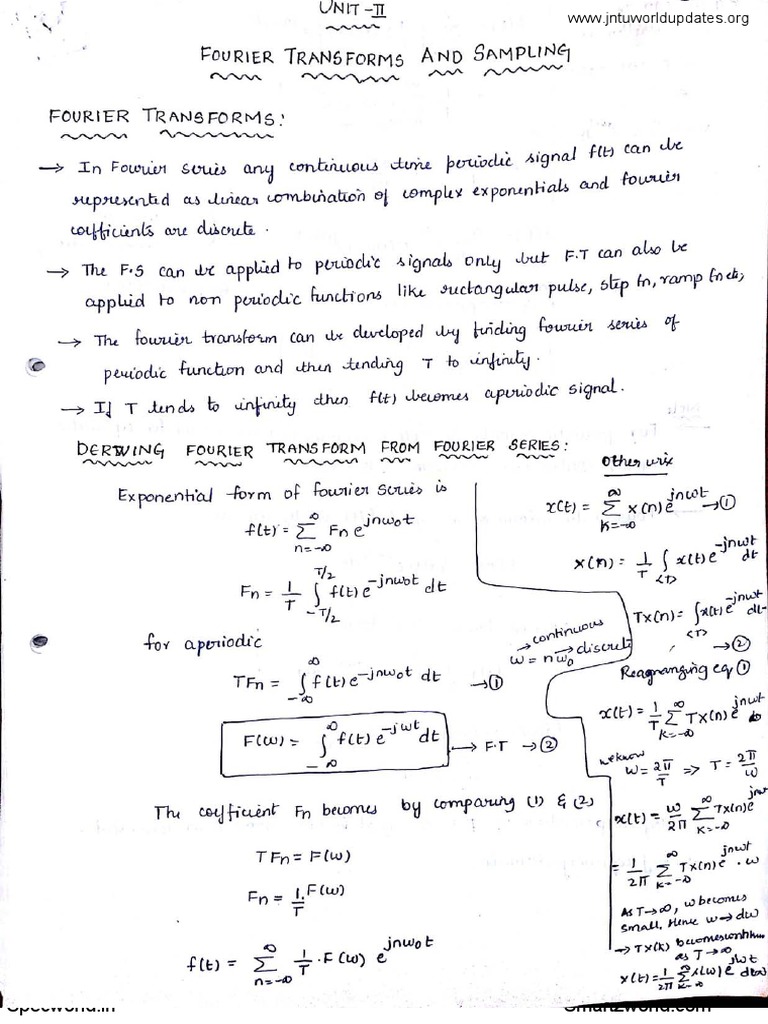 UNIT-II
www.jntuworldupdates.org
FOURIER TRANSFORMS AND SAMPLING
FOURIER TRANSFORMS:
→ In Fourier series any continuous time periodic signal f(t) can be
represented as linear combination of complex exponentials and fourier
coefficients are discrete.
→ The F.S can be applied to periodic signals only but F.T can also be
applied to non periodic functions like rectangular pulse, step fn, ramp fn etc;
→ The fourier transform can be developed by finding fourier series of
periodic function and then tending T to infinity.
→ If T tends to infinity then f(t) becomes aperiodic signal.
DERIVING FOURIER TRANSFORM FROM FOURIER SERIES:
Exponential form of fourier series is
f(t) = ∑_{n=-∞}^{∞} Fn e^{jnω₀t}
Fn = 1/T ∫_{-T/2}^{T/2} f(t) e^{-jnω₀t} dt
for aperiodic
TFn = ∫_{-∞}^{∞} f(t) e^{-jnω₀t} dt → ①
→ continuous
ω = nω₀ → discrete
F(ω) = ∫_{-∞}^{∞} f(t) e^{-jωt} dt → F.T → ②
The coefficient Fn becomes by comparing (1) & (2)
TFn = F(ω)
Fn = 1/T . F(ω)
f(t) = ∑_{n=-∞}^{∞} 1/T . F(ω) e^{jnω₀t}
Other wise
x(t) = ∑_{K=-∞}^{∞} x(n) e^{jnωt} → ①
x(n) = 1/T ∫_{<T>} x(t) e^{-jnωt} dt
Tx(n) = ∫_{<T>} x(t) e^{-jnωt} dt
→ ②
Reagranging eq ①
x(t) = 1/T ∑_{K=-∞}^{∞} Tx(n) e^{jnωt}
we know
ω = 2π/T => T = 2π/ω
x(t) = ω/2π ∑_{K=-∞}^{∞} Tx(n) e^{jnω
= 1/2π ∑_{K=-∞}^{∞} Tx(n) e^{jnωt} . ω
As T→∞, ω becomes
small. Hence ω→dω
→ Tx(k) becomes
as T→∞
x(t) = 1/2π ∑_{K=-∞}^{∞} x(ω) e^{jωt} dω
Specworld.in
Smartzworld.com